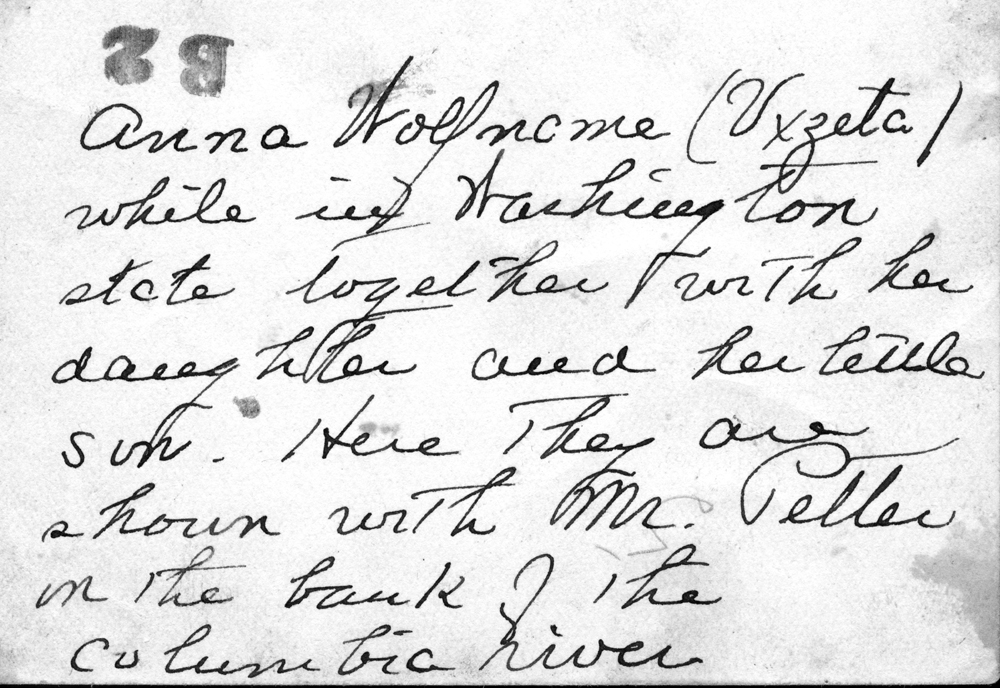 Anna Wolfname (Vxzeta)
while in Washington
state together with her
daughter and her little
son. Here They are
shown with Mr. Petter
on the bank of the
Columbia river